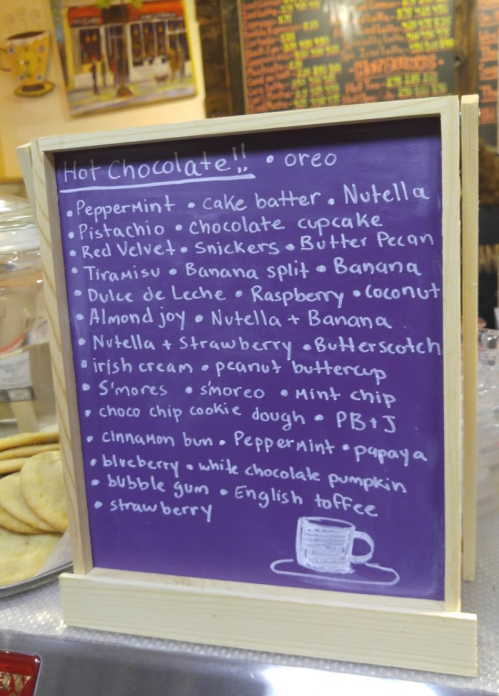 Hot Chocolate!! • oreo
• Peppermint • cake batter • Nutella
• Pistachio • chocolate cupcake
• Red Velvet • Snickers • Butter Pecan
• Tiramisu • Banana split • Banana
• Dulce de Leche • Raspberry • coconut
• Almond joy • Nutella + Banana
• Nutella + Strawberry • Butterscotch
• irish cream • peanut buttercup
• S'mores • s'moreo • Mint chip
• choco chip cookie dough • PB+J
• cinnamon bun • Peppermint • papaya
• blueberry • white chocolate pumpkin
• bubble gum • English toffee
• strawberry